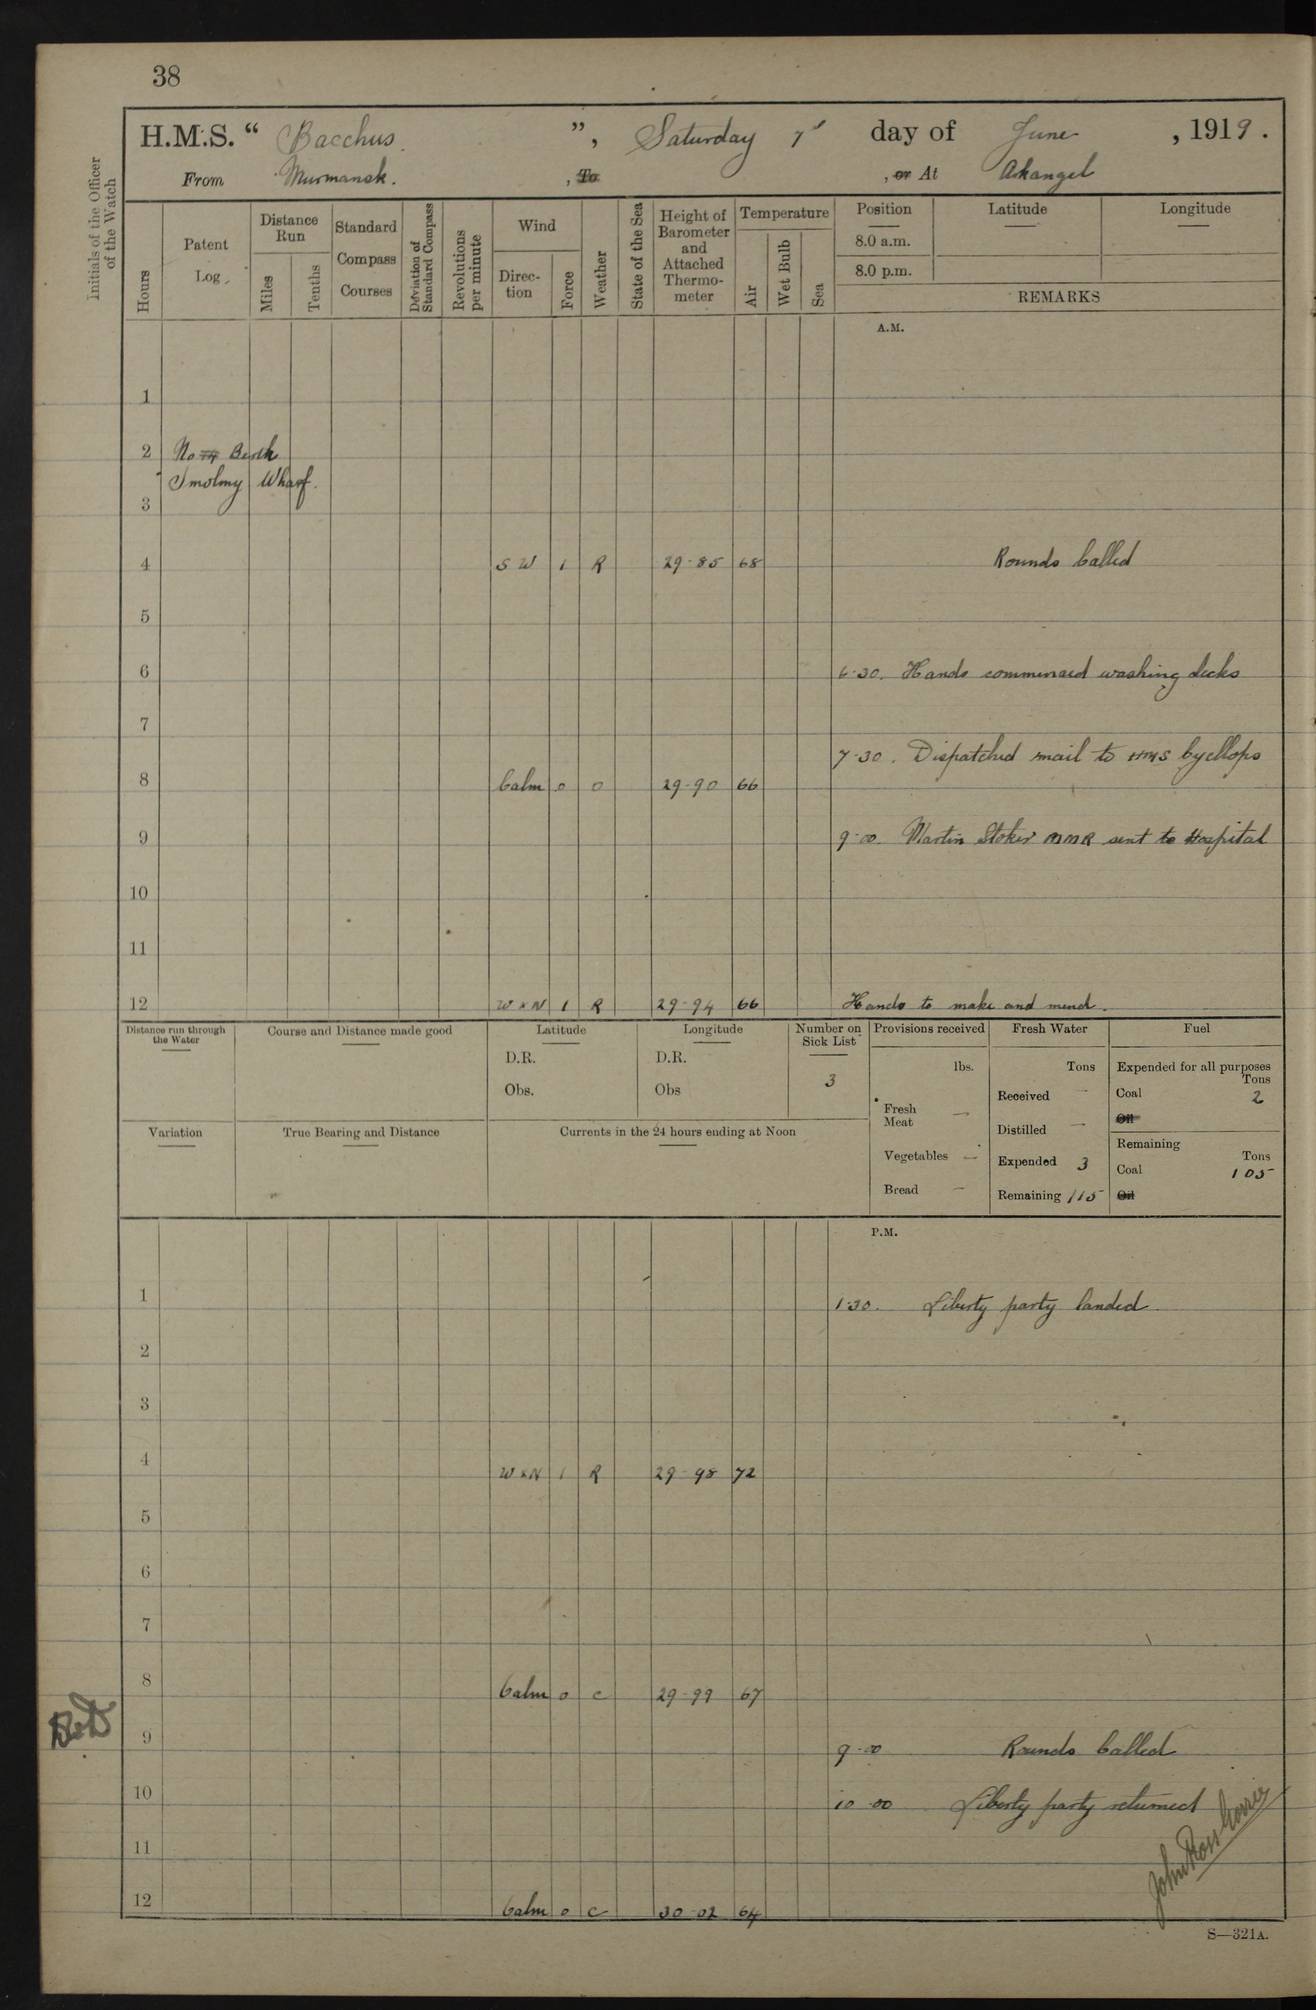 38
H.M.S. “ Bacchus. ”, Saturday 7th day of June , 1919.
From Murmansk. , To , or At Arkangel
Initials of the Officer of the Watch
Hours
Patent Log
Distance Run
Miles
Tenths
Standard Compass Courses
Deviation of Standard Compass
Revolutions per minute
Wind
Direction
Force
Weather
State of the Sea
Height of Barometer and Attached Thermometer
Temperature
Air
Wet Bulb
Sea
Position Latitude Longitude
8.0 a.m.
8.0 p.m.
REMARKS
A.M.
1
2 No Berth
Smolny Wharf.
3
4 SW 1 R 29-85 68 Rounds Called
5
6 6-30. Hands commenced washing decks
7
7-30. Dispatched mail to HMS Cyclops
8 Calm 0 0 29-90 66
9 9-00. Martin Stoker MMR sent to Hospital
10
11
12 W x N 1 R 29-94 66 Hands to make and mend.
Distance run through the Water
Course and Distance made good
Latitude
D.R.
Obs.
Longitude
D.R.
Obs
Number on Sick List
3
Provisions received
lbs.
Fresh Meat —
Vegetables —
Bread —
Fresh Water
Tons
Received —
Distilled —
Expended 3
Remaining 115
Fuel
Expended for all purposes
Tons
Coal 2
Oil
Remaining
Tons
Coal 105
Oil
Variation
True Bearing and Distance
Currents in the 24 hours ending at Noon
P.M.
1 1-30. Liberty party landed
2
3
4 W x N 1 R 29-98 72
5
6
7
8 Calm 0 c 29-99 67
9 9-00 Rounds Called
10 10-00 Liberty party returned
11
12 Calm 0 c 30-02 64
S—321A.